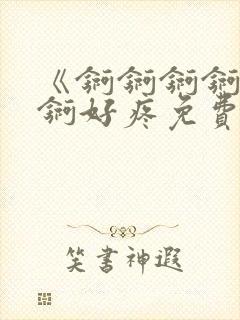 《锕锕锕锕
锕好疼免費
笑書神遐